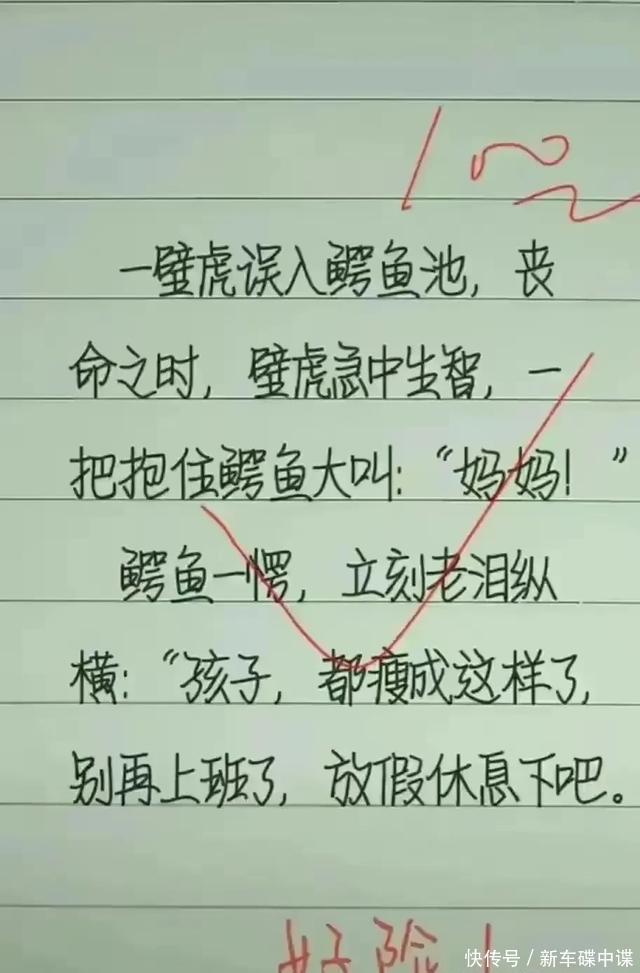 100
一壁虎误入鳄鱼池，丧
命之时，壁虎急中生智，一
把抱住鳄鱼大叫：“妈妈！”
鳄鱼一愣，立刻老泪纵
横：“孩子，都瘦成这样了，
别再上班了，放假休息下吧。
好险！
快传号／新车碟中谍